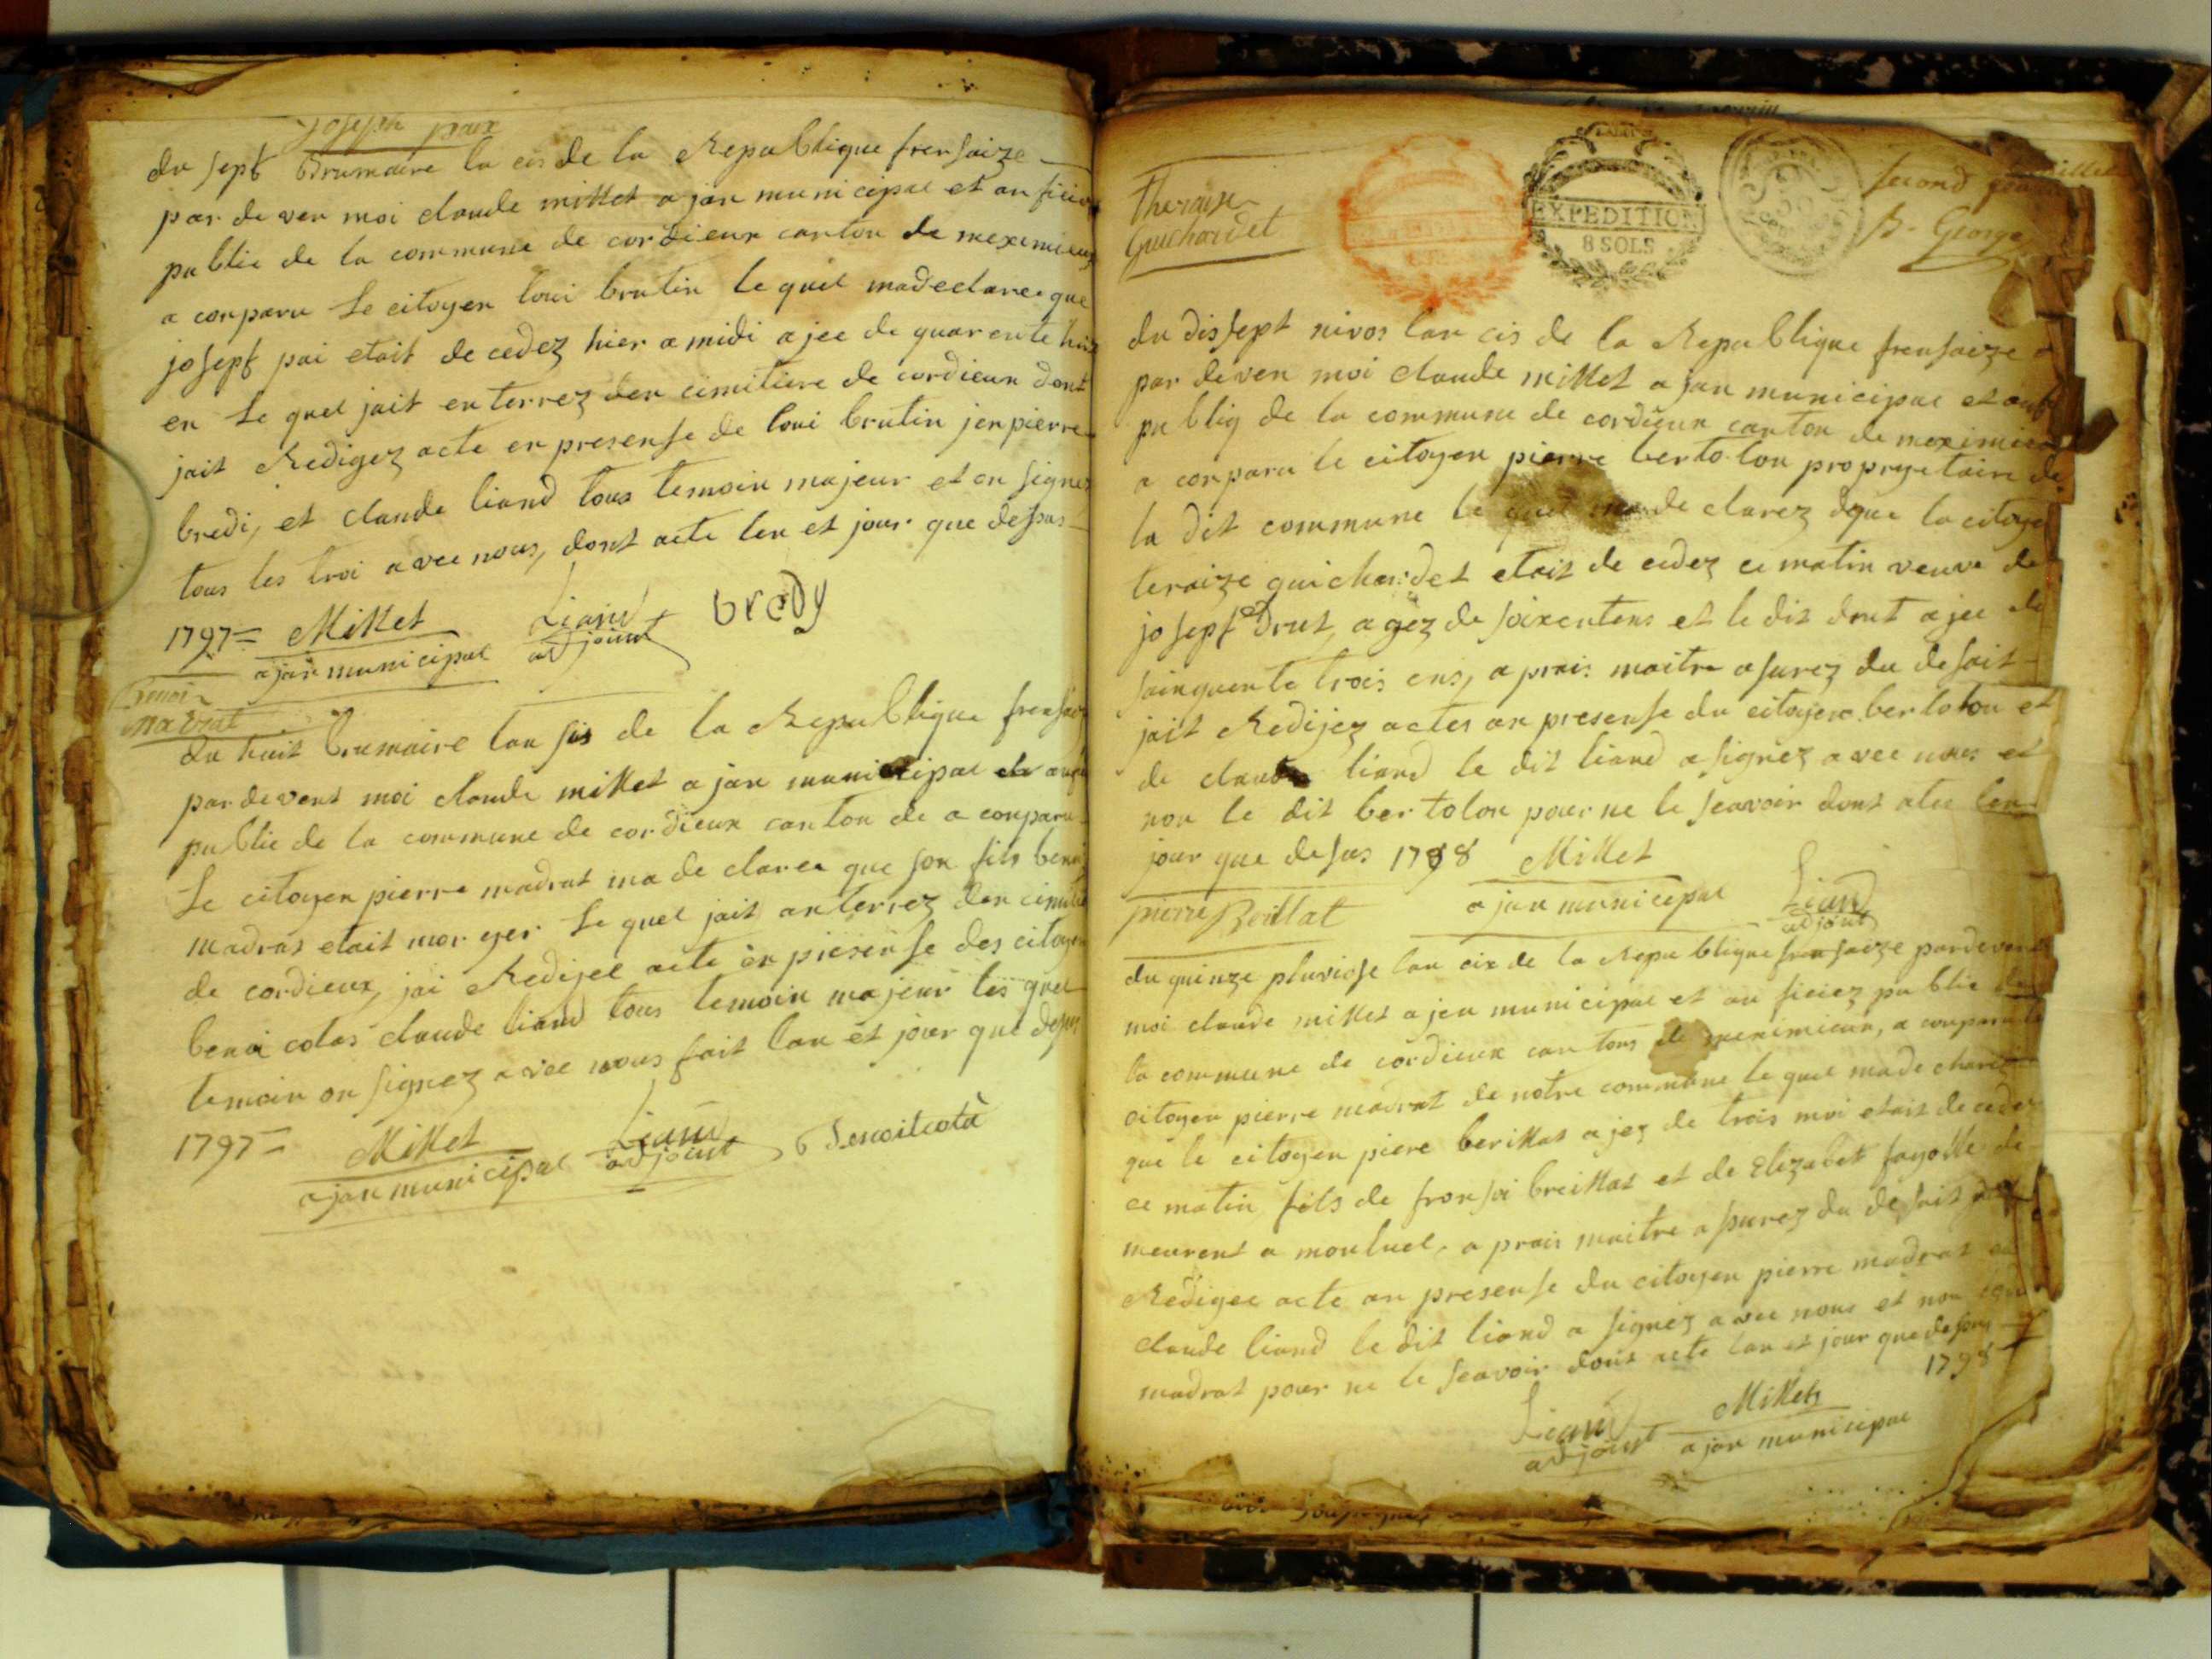 Joseph paix
du sept Brumaire la cis de la Republique fransaize
par de ven moi claude millet a jan municipal et an ficie
public de la commune de cordieux canton de meximieux
a conparu Le citoyen loui brutin le quel madeclaree que
josept pai etait de cedez hier a midi a jee de quarente huit
en Le quel jait enterrez den cimitiere de cordieux dont
jait Redigez acte en presense de loui brutin jenpierre
bredi, et claude liand tous temoin majeur et on signez
tous les troi avec nous, dont acte len et jour que desus
1797 = Millet Liand bredy
ajan municipal adjoint
Benoi
Madrat
du huit brumaire lan sis de la Republique fransaize
par devent moi claude millet a jan municipal et
public de la commune de cordieux canton de a conparu
Le citoyen pierre madrat ma de claree que son fils benoi
madras etait mor yer Le quel jait anterrez den
de cordieux, jai Redijee acte en presense des citoyen
benoi colas claude liand tous temoin majeur les quel
temoin on signez avec nous fait lan et jour que desus
1797 = Millet Liand
ajan municipal adjoint
Theraize
Guichardet
EXPEDITION
8 SOLS
Second
B. George
du dissept nivos lan cis de la Republique fransaize
par deven moi claude millet a jan municipal et
publig de la commune de cordieux canton de meximieux
a conparu le citoyen pierre bertolon propryetaire de
la dit commune le quel ma de clarez que la citoye
teraize guichardet etait de cedez ce matin veuve de
josept Drut, agez de soixentens et le dit drut a jee de
sainquente trois ens, a prais maitre asurez du desait
jait Redijez actes an presense du citoyen bertolon et
de claude liand le dit liand a signez avec nous et
non le dit bertolon pour ne le seavoir dont ate len
jour que desus 1798 Millet
ajan municipal Liand
adjoint
pierre Breillat
du quinze pluviose lan cix de la Republique fransaize pardevent
moi claude millet a jen municipal et an ficiez public de
la commune de cordieux cantons de meximieux, a conparu le
citoyen pierre madrat de notre commune le quel ma de
que le citoyen piere berillat a jez de trois moi etait de cedez
ce matin fils de fransoi breillat et de Elizabet fayolle de
meurent a montluel, a prais maitre a surez du desait
Redigee acte an presense du citoyen pierre madrat
claude liand le dit liand a signez avec nous et non
madrat pour ne le seavoir dont acte lan et jour que desus
1798
Liand Millet
adjoint ajan municipal